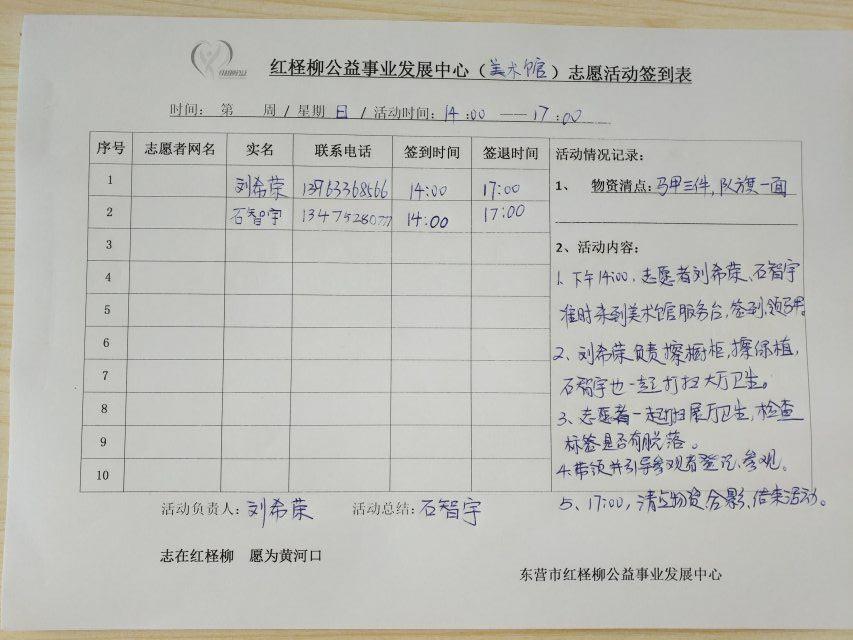 红柽柳公益事业发展中心（美术馆）志愿活动签到表
时间： 第 周 / 星期 日 / 活动时间：14:00 — 17:00
序号 志愿者网名 实名 联系电话 签到时间 签退时间
1 刘希荣 13963368566 14:00 17:00
2 石智宇 1347528077 14:00 17:00
3
4
5
6
7
8
9
10
活动情况记录：
1、 物资清点：马甲三件，队旗一面
2、活动内容：
1. 下午14:00，志愿者刘希荣、石智宇
准时来到美术馆服务台，签到，领马甲。
2、刘希荣负责擦橱柜，擦绿植，
石智宇也一起打扫大厅卫生。
3、志愿者一起打扫展厅卫生，检查
标签是否有脱落。
4.带领并引导参观者登记、参观。
5、17:00，清点物资，合影，结束活动。
活动负责人：刘希荣 活动总结：石智宇
志在红柽柳 愿为黄河口
东营市红柽柳公益事业发展中心